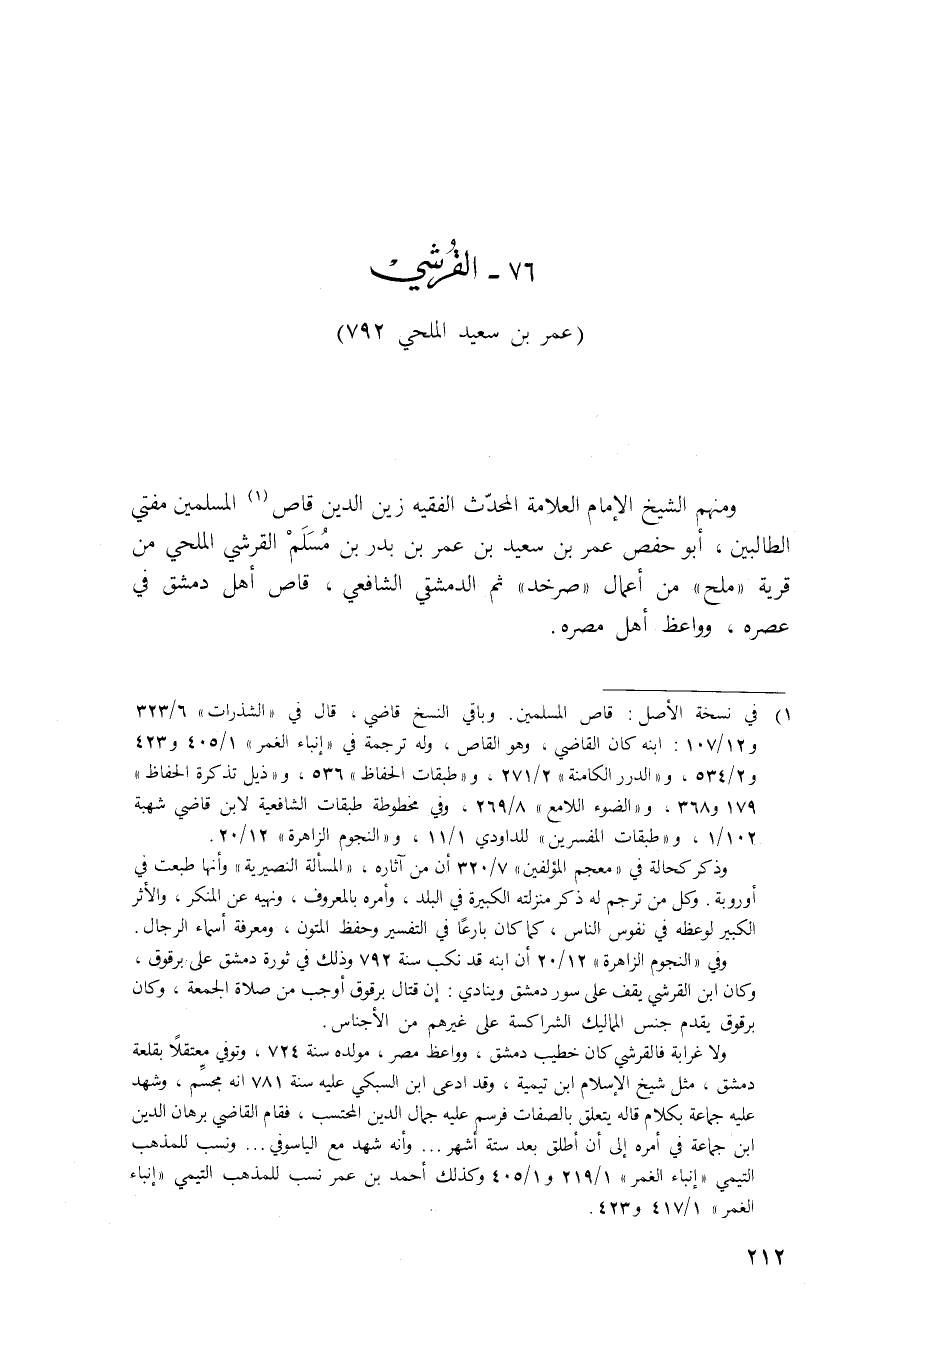 ٧٦ - القُرشي
(عمر بن سعيد الملحي ٧٩٢)
ومنهم الشيخ الإمام العلامة المحدّث الفقيه زين الدين قاص (١) المسلمين مفتي
الطالبين ، أبو حفص عمر بن سعيد بن عمر بن بدر بن مُسَلَمْ القرشي الملحي من
قرية «ملح» من أعمال «صرخد» ثم الدمشقي الشافعي ، قاص أهل دمشق في
عصره ، وواعظ أهل مصره .
١) في نسخة الأصل : قاص المسلمين . وباقي النسخ قاضي ، قال في «الشذرات» ٣٢٣/٦
و١٠٧/١٢ : ابنه كان القاضي ، وهو القاص ، وله ترجمة في «إنباء الغمر» ٤٠٥/١ و٤٢٣
و٥٣٤/٢ ، و«الدرر الكامنة» ٢٧١/٢ ، و«طبقات الحفاظ» ٥٣٦ ، و«ذيل تذكرة الحفاظ»
١٧٩ و٣٦٨ ، و«الضوء اللامع» ٢٦٩/٨ ، وفي مخطوطة طبقات الشافعية لابن قاضي شهبة
١/١٠٢ ، و«طبقات المفسرين» للداودي ١١/١ ، و«النجوم الزاهرة» ٢٠/١٢ .
وذكر كحالة في «معجم المؤلفين» ٣٢٠/٧ أن من آثاره ، «المسألة النصيرية» وأنها طبعت في
أوروبة . وكل من ترجم له ذكر منزلته الكبيرة في البلد ، وأمره بالمعروف ، ونهيه عن المنكر ، والأثر
الكبير لوعظه في نفوس الناس ، كما كان بارعًا في التفسير وحفظ المتون ، ومعرفة أسماء الرجال .
وفي «النجوم الزاهرة» ٢٠/١٢ أن ابنه قد نكب سنة ٧٩٢ وذلك في ثورة دمشق على برقوق ،
وكان ابن القرشي يقف على سور دمشق وينادي : إن قتال برقوق أوجب من صلاة الجمعة ، وكان
برقوق يقدم جنس المماليك الشراكسة على غيرهم من الأجناس .
ولا غرابة فالقرشي كان خطيب دمشق ، وواعظ مصر ، مولده سنة ٧٢٤ ، وتوفي معتقلًا بقلعة
دمشق ، مثل شيخ الإسلام ابن تيمية ، وقد ادعى ابن السبكي عليه سنة ٧٨١ انه مجسِّم ، وشهد
عليه جماعة بكلام قاله يتعلق بالصفات فرسم عليه جمال الدين المحتسب ، فقام القاضي برهان الدين
ابن جماعة في أمره إلى أن أطلق بعد ستة أشهر ... وأنه شهد مع الياسوفي ... ونسب للمذهب
التيمي «إنباء الغمر» ٢١٩/١ و٤٠٥/١ وكذلك أحمد بن عمر نسب للمذهب التيمي «إنباء
الغمر» ٤١٧/١ و٤٢٣ .
٢١٢